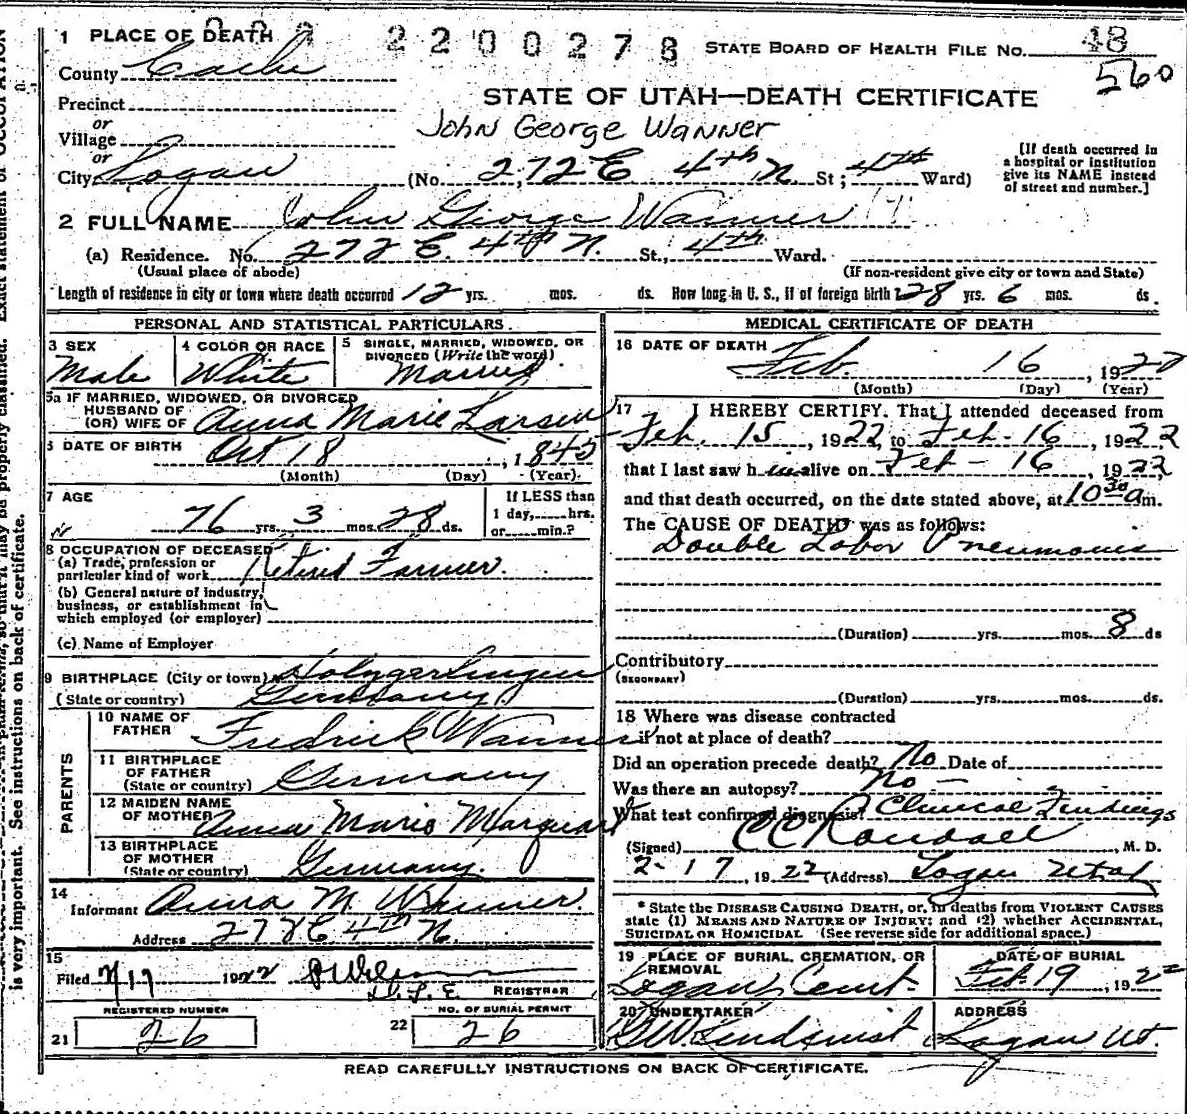 1 PLACE OF DEATH 2200278 STATE BOARD OF HEALTH FILE No. 48
County Cache 560
Precinct
STATE OF UTAH—DEATH CERTIFICATE
or
John George Wanner
Village
or
City Logan (No. 272 E 4th N. St; 4th Ward)
[If death occurred in
a hospital or institution
give its NAME instead
of street and number.]
2 FULL NAME John George Wanner
(a) Residence. No. 272 E. 4th N. St., 4th Ward.
(Usual place of abode) (If non-resident give city or town and State)
Length of residence in city or town where death occurred 12 yrs. mos. ds. How long in U. S., if of foreign birth 28 yrs. 6 mos. ds.
PERSONAL AND STATISTICAL PARTICULARS.
3 SEX Male
4 COLOR OR RACE White
5 SINGLE, MARRIED, WIDOWED, OR
DIVORCED (Write the word)
Married
5a IF MARRIED, WIDOWED, OR DIVORCED
HUSBAND OF
(OR) WIFE OF Anna Marie Larsen
6 DATE OF BIRTH Oct 18, 1845
(Month) (Day) (Year)
7 AGE
76 yrs. 3 mos. 28 ds.
If LESS than
1 day,......hrs.
or......min.?
8 OCCUPATION OF DECEASED
(a) Trade, profession or
particular kind of work Retired Farmer.
(b) General nature of industry,
business, or establishment in
which employed (or employer)
(c) Name of Employer
9 BIRTHPLACE (City or town) Holzgerlingen
(State or country) Germany.
PARENTS
10 NAME OF
FATHER Fredrick Wanner
11 BIRTHPLACE
OF FATHER
(State or country) Germany
12 MAIDEN NAME
OF MOTHER Anna Maria Marquart
13 BIRTHPLACE
OF MOTHER
(State or country) Germany.
14
Informant Anna M Wanner
Address 272 E 4th N.
15
Filed 2/17 1922
REGISTRAR
REGISTERED NUMBER
21 26
NO. OF BURIAL PERMIT
22 26
MEDICAL CERTIFICATE OF DEATH
16 DATE OF DEATH Feb. 16, 1922
(Month) (Day) (Year)
17 I HEREBY CERTIFY. That I attended deceased from
Feb. 15, 1922 to Feb-16, 1922
that I last saw h im alive on Feb-16, 1922,
and that death occurred, on the date stated above, at 10 30 a m.
The CAUSE OF DEATH was as follows:
Double Lobar Pneumonia
(Duration) yrs. mos. 8 ds
Contributory
(SECONDARY)
(Duration) yrs. mos. ds.
18 Where was disease contracted
if not at place of death?
Did an operation precede death? No Date of
Was there an autopsy? No -
What test confirmed diagnosis? Clinical Findings
(Signed) CC Randall, M. D.
2-17, 1922 (Address) Logan Utah
* State the DISEASE CAUSING DEATH, or, in deaths from VIOLENT CAUSES
state (1) MEANS AND NATURE OF INJURY; and (2) whether ACCIDENTAL,
SUICIDAL OR HOMICIDAL (See reverse side for additional space.)
19 PLACE OF BURIAL, CREMATION, OR
REMOVAL
Logan Cemt.
DATE OF BURIAL
Feb. 19, 1922
20 UNDERTAKER
GW Lindquist
ADDRESS
Logan Ut.
READ CAREFULLY INSTRUCTIONS ON BACK OF CERTIFICATE.
is very important. See instructions on back of certificate.